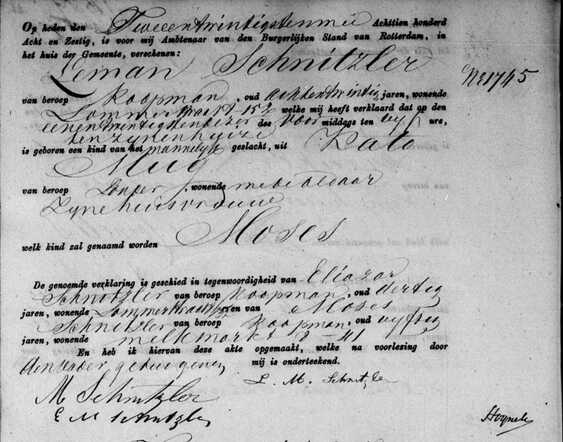 Op heden den Tweeentwintigsten mei Achttien honderd
Acht en Zestig, is voor mij Ambtenaar van den Burgerlijken Stand van Rotterdam, in
het huis der Gemeente, verschenen:
Leman Schnitzler
No 1745
van beroep Koopman, oud achtentwintig jaren, wonende
Lommerstraat 17-152 welke mij heeft verklaard dat op den
eenentwintigsten dezer des voor middags ten vijf ure,
ten zynen huize
is geboren een kind van het mannelijk geslacht, uit Kaat
van beroep zonder, wonende mede aldaar
Zyne huisvrouw
welk kind zal genaamd worden Moses
De genoemde verklaring is geschied in tegenwoordigheid van Eliazar
Schnitzler van beroep Koopman, oud dertig
jaren, wonende Lommerstraat en van Moses
Schnitzler van beroep Koopman, oud
jaren, wonende melkmarkt 18-41
En heb ik hiervan deze akte opgemaakt, welke na voorlezing door
den vader, getuigen mij is onderteekend.
L. M. Schnitzler
M Schnitzler
E M Schnitzler